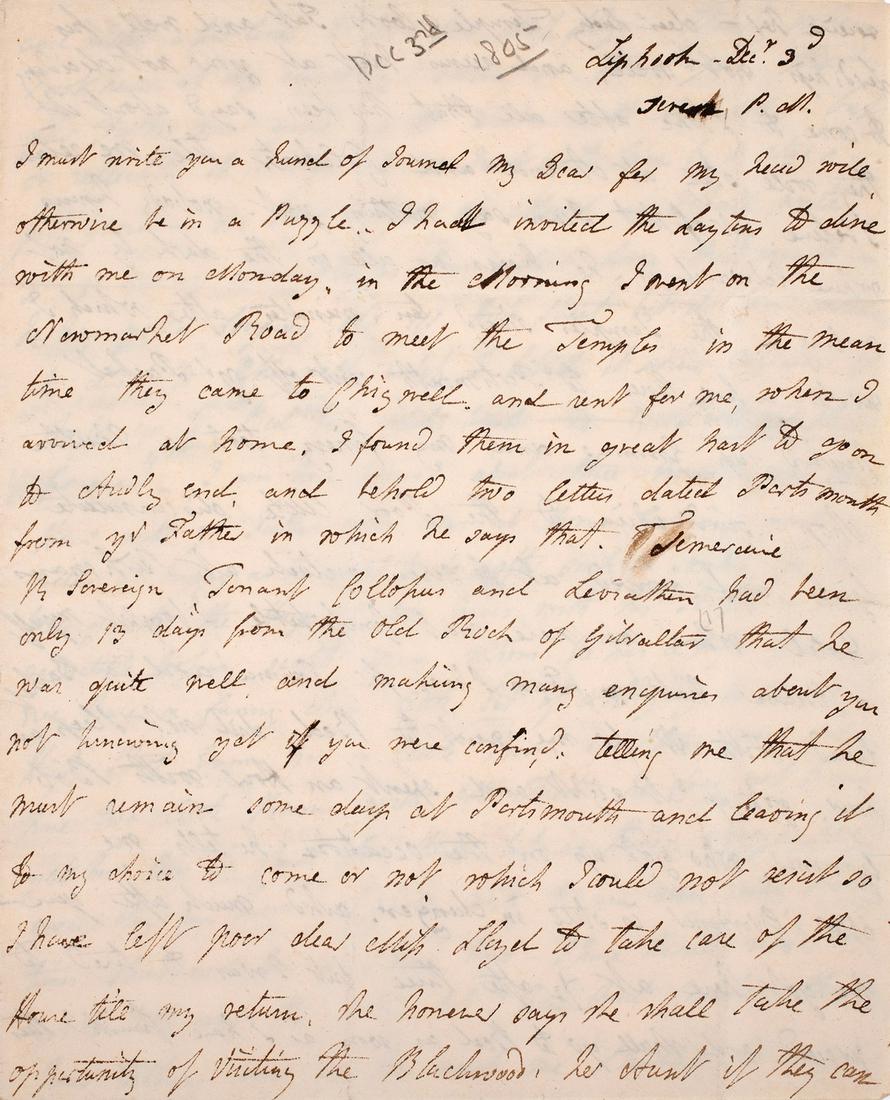 Dec 3rd 1805
Liphook - Decr. 3d
seven P.M.
I must write you a kind of Journal my Dear for my head wile
otherwise be in a Puzzle.. I had invited the Laytons to dine
with me on Monday, in the Morning I went on the
Newmarket Road to meet the Temples in the mean
time they came to Chigwell. and sent for me, when I
arrived at home. I found them in great hast to go on
to Audly end, and behold two letters dated Portsmouth
from yr Father in which he says that. Temeraire
R Sovereign Tonant Collopus and Leviathen had been
only 13 days from the Old Rock of Gibraltar that he
was quite well and making many enquiries about you
not knowing yet if you were confind. telling me that he
must remain some days at Portsmouth and leaving it
to my choice to come or not which I could not resist so
I have left poor dear Miss Lloyd to take care of the
House tile my return, she however says she shall take the
opportunity of Visiting the Blackwood: her Aunt if they can